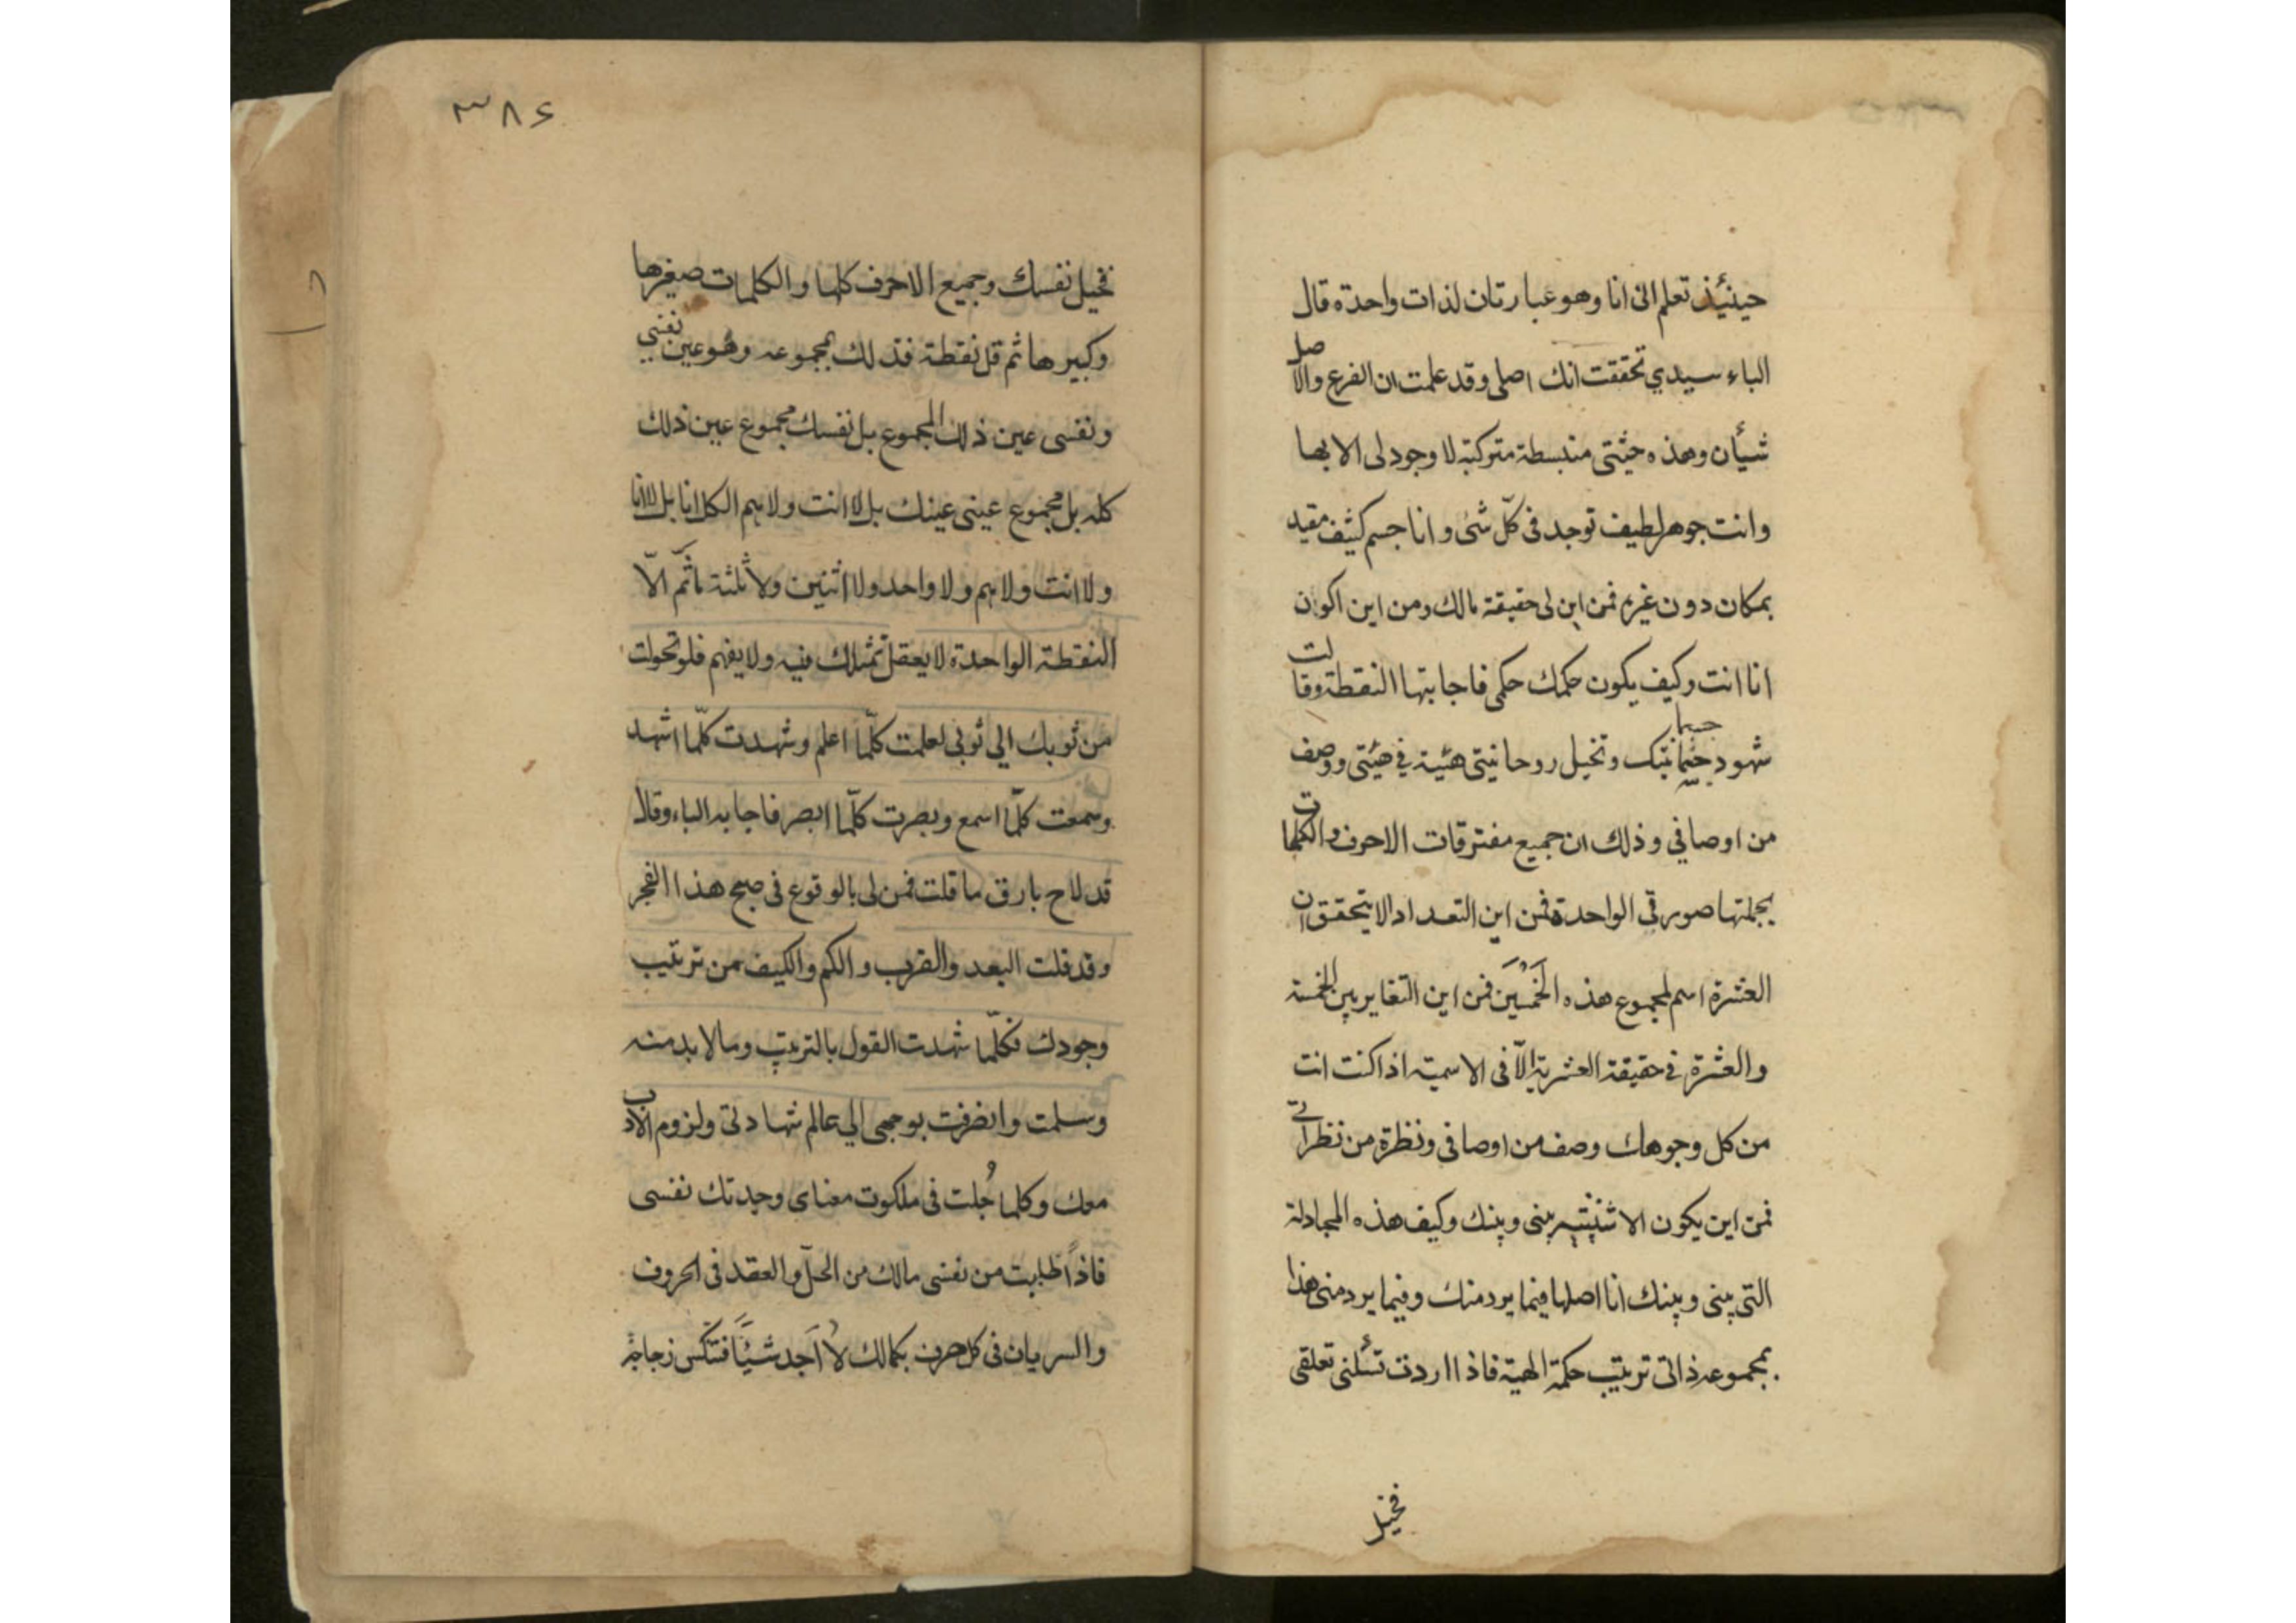 حينئذ تعلم انى انا وهو عبارتان لذات واحدة قال
الباء سيدي تحققت انك اصلى وقد علمت ان الفرع والاصل
شيأن وهذه جثتى منبسطة متركبة لا وجود لى الا بها
وانت جوهر لطيف توجد فى كلّ شئ وانا جسم كثيف مقيد
بمكان دون غيره فمن اين لى حقيقة مالك ومن اين اكون
انا انت وكيف يكون حكمك حكمى فاجابتها النقطة وقالت
شهود جسمانيتك وتخيل روحانيتى هيئة في هيئتى ووصف
من اوصافي وذلك ان جميع مفترقات الاحرف والكلمات
بجملتها صورتى الواحدة فمن اين التعداد الا يتحقق ان
العشرة اسم لمجموع هذه الخَمْسَين فمن اين التغاير بين الخمسة
والعشرة في حقيقة العشرية الّا فى الاسمية اذا كنت انت
من كل وجوهك وصف من اوصافى ونظرة من نظراتى
فمن اين يكون الاثنينية بينى وبينك وكيف هذه المجادلة
التى بينى وبينك انا اصلها فيما يرد منك وفيما يرد منى هذا
بمجموعه ذاتى ترتيب حكمة الهية فاذا اردت تسألنى تعلقى
فخيل
٣٨٤
فخيل نفسك وجميع الاحرف كلها والكلمات صغيرها
وكبيرها ثم قل نقطة فذلك بمجموعه وهو عين نفسي
ونفسى عين ذلك المجموع بل نفسك مجموع عين ذلك
كله بل مجموع عينى عينك بل لا انت ولا هم الكل انا بل لا انا
ولا انت ولا هم ولا واحد ولا اثنين ولا ثلثة ما ثَّم الّا
النقطة الواحدة لا يعقل تمثلك فيه ولا يفهم فلو تحولت
من ثوبك الي ثوبى لعلمت كلّما اعلم وشهدت كلّما اشهد
وسمعت كلّما اسمع وبصرت كلّما ابصر فاجابه الباء وقال
قد لاح بارق ما قلت فمن لى بالوقوع فى صبح هذا الفجر
وقد قلت البعد والقرب والكم والكيف من ترتيب
وجودك فكلّما شهدت القول بالترتيب وما لا بد منه
وسلمت وانصرفت بوجهى الي عالم شهادتى ولزوم الادب
معك وكلما جُلت فى ملكوت معناى وجدتك نفسى
فاذاً طلبت من نفسى مالك من الحلّ والعقد فى الحروف
والسريان فى كل حرف بكمالك لا اَجد شيئاً فتنكّس زجاجة